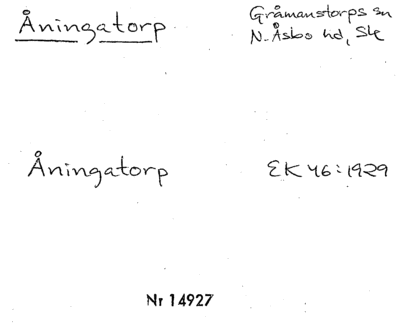 Åningatorp
Gråmanstorps sn
N. Åsbo hd, Sk
Åningatorp
EK 46:1929
Nr 14927